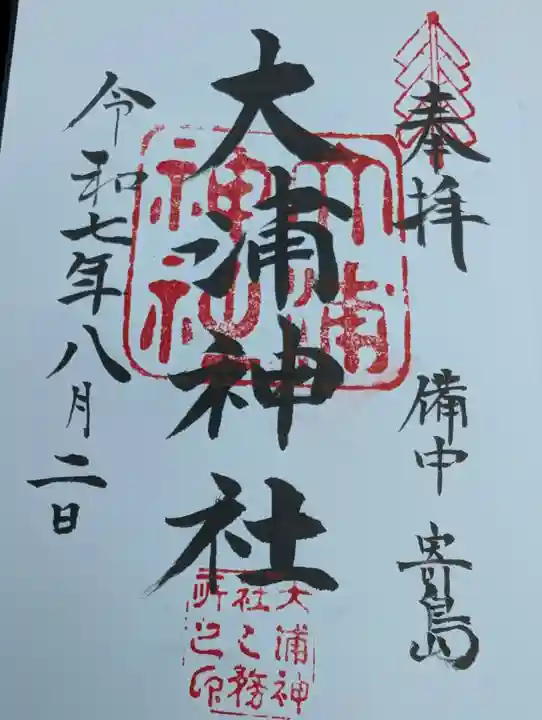 奉拝
備中 寄島
大浦神社
令和七年八月二日
大浦
神社
大浦神
社之務
所之印